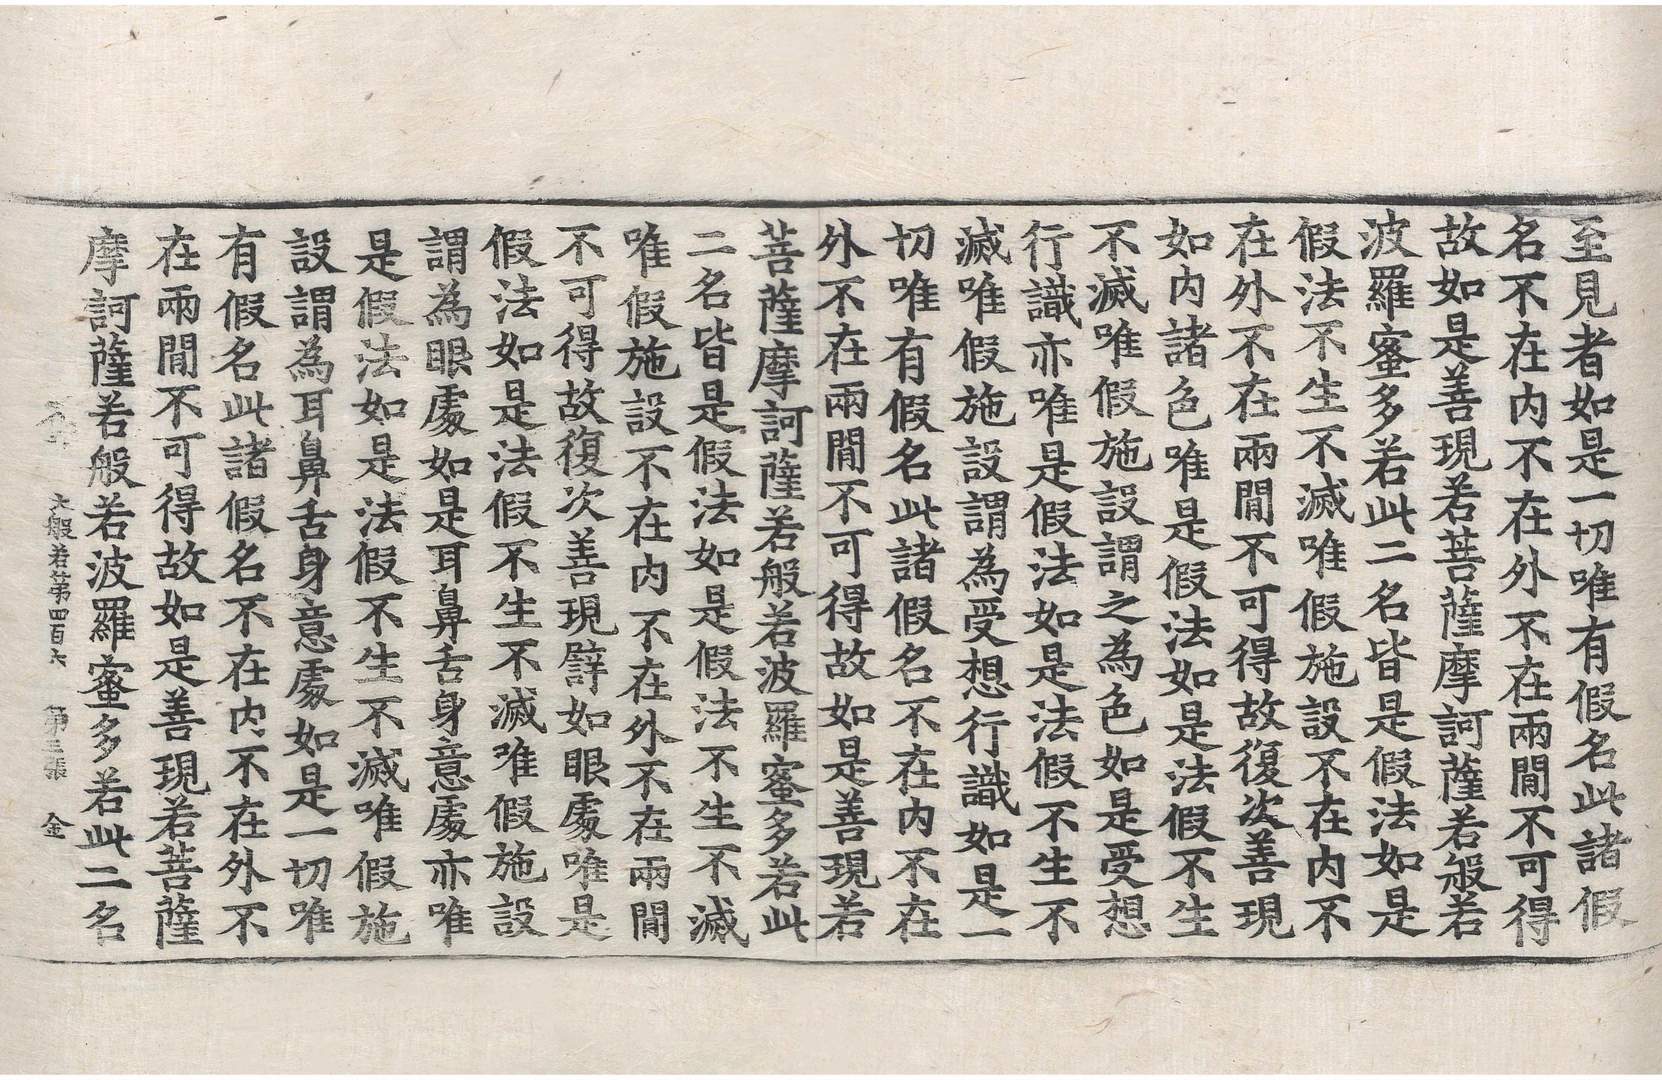 至見者如是一切唯有假名此諸假
名不在內不在外不在兩閒不可得
故如是善現若菩薩摩訶薩若般若
波羅蜜多若此二名皆是假法如是
假法不生不滅唯假施設不在內不
在外不在兩閒不可得故復次善現
如內諸色唯是假法如是法假不生
不滅唯假施設謂之為色如是受想
行識亦唯是假法如是法假不生不
滅唯假施設謂為受想行識如是一
切唯有假名此諸假名不在內不在
外不在兩閒不可得故如是善現若
菩薩摩訶薩若般若波羅蜜多若此
二名皆是假法如是假法不生不滅
唯假施設不在內不在外不在兩閒
不可得故復次善現譬如眼處唯是
假法如是法假不生不滅唯假施設
謂為眼處如是耳鼻舌身意處亦唯
是假法如是法假不生不滅唯假施
設謂為耳鼻舌身意處如是一切唯
有假名此諸假名不在內不在外不
在兩閒不可得故如是善現若菩薩
摩訶薩若般若波羅蜜多若此二名
大般若第四百六 第三張 金